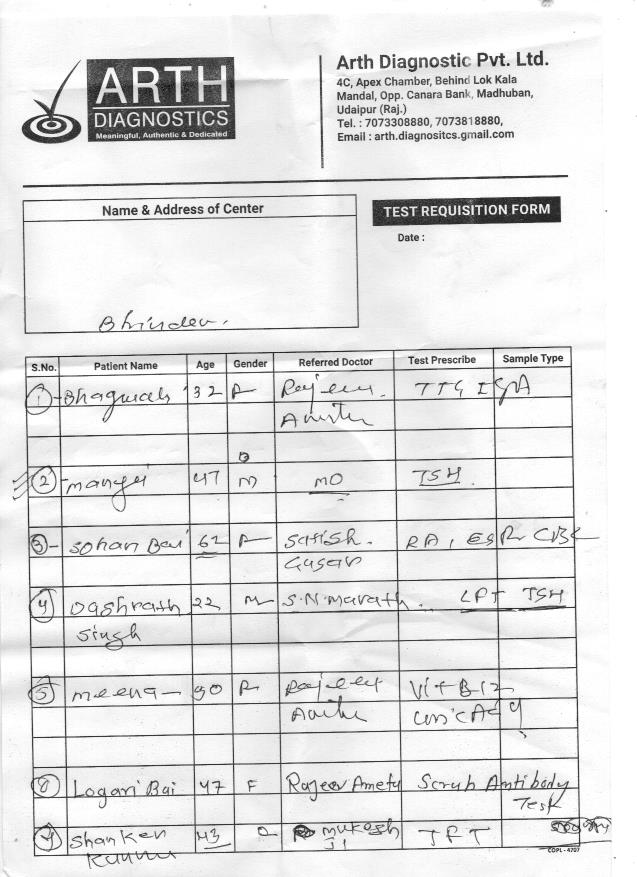 ARTH
DIAGNOSTICS
Meaningful, Authentic & Dedicated
Arth Diagnostic Pvt. Ltd.
4C, Apex Chamber, Behind Lok Kala
Mandal, Opp. Canara Bank, Madhuban,
Udaipur (Raj.)
Tel. : 7073308880, 7073818880,
Email : arth.diagnositcs.gmail.com
Name & Address of Center
TEST REQUISITION FORM
Date :
Bhinder.
S.No. Patient Name Age Gender Referred Doctor Test Prescribe Sample Type
1 - 32 F Rajeev TTG IGA
2 - 47 M MO TSH
3 - Sohan Bai 62 F Satish. RA, ESR CBC
4 Dashrath 22 M S.N. LFT TSH
Singh
5 meena - F Rajeev Vit B-12
Uric Acid
8 Logari Bai 47 F Rajeev Ameta Scrub Antibody
Test
Shanker 43 mukesh TFT
Ji
COPL - 4707